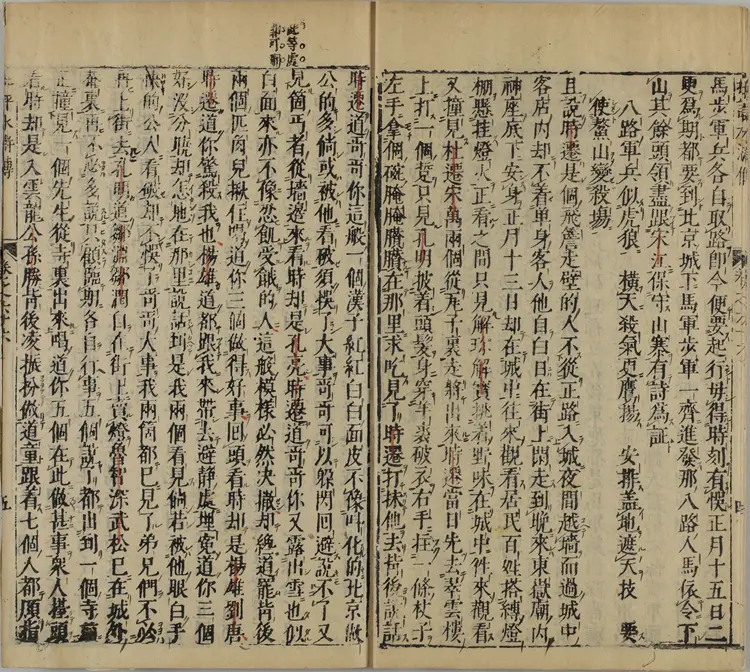 馬步軍兵各自取路即今便要起行毋得時刻有悞正月十五日二
更爲期都要到北京城下馬軍步軍一齊進發那八路人馬依令下
山其餘頭領盡跟宋江保守山寨有詩爲証
八路軍兵似虎狼 橫天殺氣更鷹揚 安排蓋地遮天技 要
使鰲山變殺場
且說時遷是個飛簷走壁的人不從正路入城夜間越墻而過城中
客店內却不着單身客人他自白日在街上閒走到晚來東嶽廟內
神座底下安身正月十三日却在城中往來觀看居民百姓搭縛燈
棚懸挂燈火正看之間只見解珍解寶挑着野味在城中往來觀看
又撞見杜遷宋萬兩個從瓦子裏走將出來時遷當日先去翠雲樓
上打一個踅只見孔明披着頭髮身穿羊裘破衣右手拄一條杖子
左手拿個碗腌腌臢臢在那里求吃見了時遷打抹他去背後說話
時遷道哥哥你這般一個漢子紅紅白白面皮不像叫化的北京做
公的多倘或被他看破須悞了大事哥哥可以躲閃回避說不了又
見箇丐者從墻邊來看時却是孔亮時遷道哥哥你又露出雪也似
白面來亦不像忍飢受餓的人這般模樣必然決撒却纔道罷背後
兩個匹角兒揪住喝道你三個做得好事回頭看時却是楊雄劉唐
時遷道你驚殺我也楊雄道都跟我來帶去避靜處埋寃道你三個
好沒分曉却怎地在那里說話到是我兩個看見倘若被他眼白手
快的公人看破却不悞了哥哥大事我兩箇都已見了弟兄們不必
再上街去孔明道鄒淵鄒潤自在街上賣燈魯智深武松已在城外
菴裏再不必多說只顧臨期各自行事五個說了都出到一個寺前
正撞見一個先生從寺裏出來喝道你五個在此做甚事衆人擡頭
看時却是入雲龍公孫勝背後凌振扮做道童跟着七個人都頤指
此等處
五